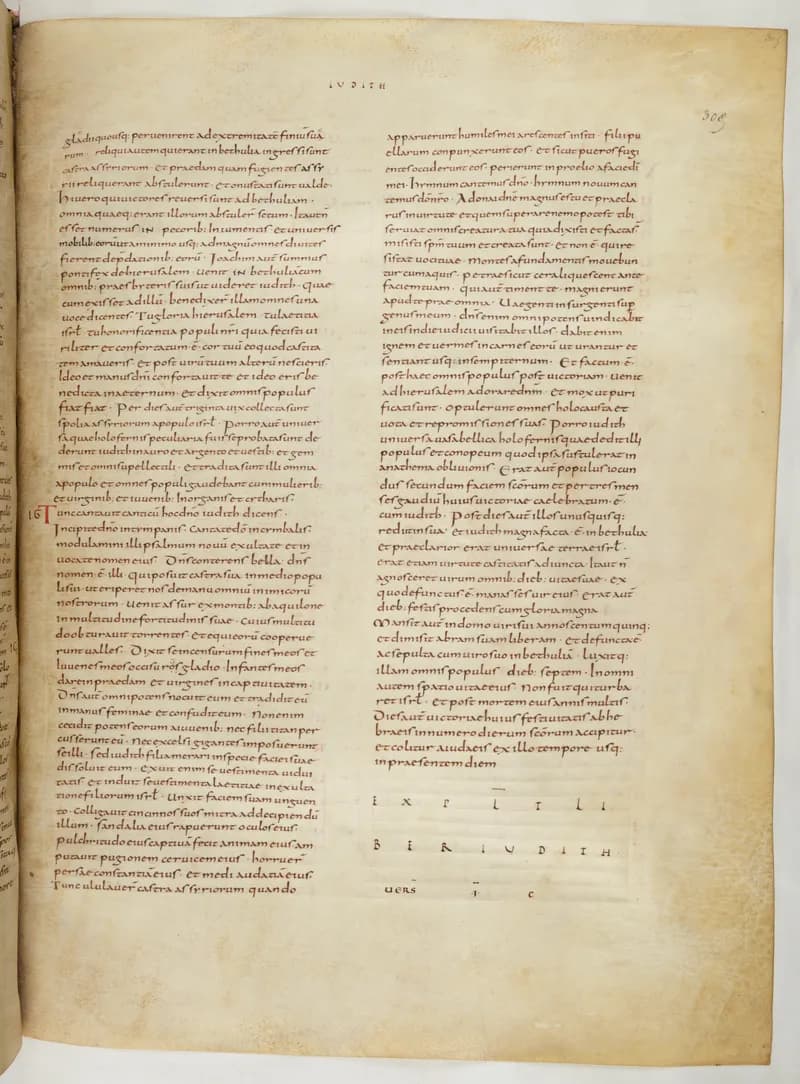 IUDITH
308
gladii quousq: peruenirent ad extremitatē finiū suarum
reliqui autem qui erant in bethulia ingressi sunt
castra assyriorum · et praedam quam fugientes assy
rii reliquerant abstulerunt · et onustati sunt ualde ·
Hi uero qui uictores reuersi sunt ad bethuliam ·
omnia quaeq: erant illorum abstuler̄ secum · Ita ut n̄
esset numerus IN pecorib: In iumentis et uniuersis
mobilib: eorū ut a minimo usq: ad magnū omnes diuites
fierent de p̄dationib: eorū · Joachim aut̄ summus
pontifex de hierusalem · uenit IN bethuliā cum
omnib: praesbyteris suis ut uideret iudith · quae
cum exisset ad illū · benedixer̄ illam omnes una
uoce dicentes Tu gloria hierusalem · tu laetitia
isrl̄ · tu honorificentia populi nr̄i quia fecisti ui
riliter et confortatum ē · cor tuū eo quod castita
tem amaueris · Et post uirū tuum alterū nescieris
Ideo et manus dn̄i confortauit te · et ideo eris be
nedicta in aeternum · et dixit omnis populus
fiat fiat · Per dies aut̄ triginta uix collecta sunt
spolia assyriorum a populo isrl̄ · Porro aut̄ uniuer
sa quae holofernis peculiaria fuisse probata sunt de
derunt iudith in auro et argento et uestib: et gem
mis et omni supellectali · et tradita sunt illi omnia
a populo et omnes populi gaudebant cum mulierib:
et uirginib: et iuuenib: In organis et citharis ·
16 Tunc cantauit canticū hoc dn̄o iudith dicens ·
Incipite dn̄o in tympanis · Cantate dn̄o in cymbalis ·
modulamini illi psalmum nouū exultate et in
uocate nomen eius · Dn̄s conterens bella · dn̄s
nomen · ē · illi · qui posuit castra sua in medio popu
li sui · ut eriperet nos de manu omniū inimicorū
nostrorum · Uenit assur ex montib: ab aquilone
in multitudine fortitudinis suae · Cuius multitu
do obturauit torrentes et equi eorū cooperue
runt ualles · Dixit se incensurum fines meos et
Iuuenes meos occisurū gladio · Infantes meos
dare in praedam et uirgines in captiuitatem ·
Dn̄s aut̄ omnipotens nocuit eum et tradidit eū
in manus feminae et confudit eum · Non enim
cecidit potens eorum a iuuenib: nec filii titan per
cusserunt eū · Nec excelsi gigantes imposuerunt
se illi · sed iudith filia merari in specie faciei suae
dissoluit eum · exuit enim se uestimenta uidui
tatis et induit se uestimenta laetitiae in exulta
tione filiorum isrl̄ · Unxit faciem suam unguen
to · Colligauit cincinnos suos mitra ad decipiendū
illum · sandalia eius rapuerunt oculos eius ·
pulchritudo eius captiuā fecit animam eius am
putauit pugionem ceruicem eius · horruer̄
persae constantiā eius et medi audatiā eius ·
Tunc ululauer̄ castra assyriorum quando
apparuerunt humiles mei arescentes in siti · filii pu
ellarum conpunxerunt eos · et sicut pueros fugi
entes occiderunt eos · perierunt in proelio a facie dn̄i
mei · hymnum cantemus dn̄o · hymnum nouum can
temus dn̄o nr̄o · Adonai dn̄e magnus es tu et praecla
rus in uirtute et quem superare nemo potest tibi
seruiat omnis creatura tua quia dixisti et facta s̄ ·
misisti sp̄m tuum et creata sunt · et non ē · qui re
sistat uoci tuae · Montes a fundamentis mouebun
tur cum aquis · petrae sicut cera liquescent ante
faciem tuam · qui aut̄ timent te · magni erunt
apud te prae omnia · Uae genti insurgenti sup̄
genus meum · dn̄s enim omnipotens uindicabit
in eis in die iudicii uisitabit illos · dabit enim
ignem et uermes in carnes eorū ut urantur et
sentiant usq: in sempiternum · Et factum · ē ·
post haec omnis populus post uictoriam · uenit
ad hierusalem adorare dn̄m · et mox ut puri
ficati sunt · optulerunt omnes holocausta et
uota et repromissiones suas · Porro iudith
uniuersa uasa bellica holofernis quae dedit illi
populus et conopeum quod ipsa sustulerat in
anathema obliuionis · Erat aut̄ populus iocun
dus secundum faciem sc̄orum et per tres men
ses gaudiū huius uictoriae caelebratum · ē ·
cum iudith · Post dies aut̄ illos unusquisq:
rediit in sua · et iudith magna facta · ē · in bethulia
et praeclarior erat uniuersae terrae isrl̄ ·
erat etiam uirtute castitatis adiuncta · Ita ut n̄
agnosceret uirum omnib: dieb: uitae suae · ex
quo defunctus ē · manasses uir eius · erat aut̄
dieb: festis procedens cum gloria magna
Mansit aut̄ in domo uiri sui annos centum quinq:
et dimisit abram suam liberam · et defuncta ē
ac sepulta cum uiro suo in bethuliā · Luxitq:
illam omnis populus dieb: septem · In omni
autem spatio uitae eius Non fuit qui turba
ret isrl̄ · et post mortem eius annis multis ·
Dies aut̄ uictoriae huius festiuitatis ab he
braeis in numero dierum sc̄orum accipitur ·
et colitur a iudaeis ex illo tempore usq:
in praesentem diem
EXPL̄ LI
BER IUDITH
UERS Ī C